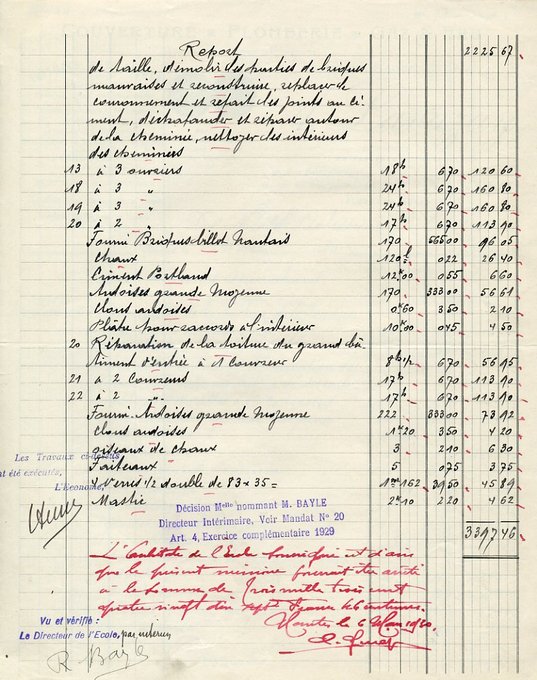 Report 2225 67
de taille, démolir des parties de briques
mauvaises et reconstruire, replacer le
couronnement et refait des joints au ci-
ment, déchafauder et réparer autour
de la cheminée, nettoyer des intérieurs
des cheminées
13 à 3 ouvriers 18h 6 70 120 60
18 à 3 " 24h 6 70 160 80
19 à 3 " 24h 6 70 160 80
20 à 2 " 17h 6 70 113 90
Fourni Briques billot Nantais 170 565 00 96 05
Chaux 120l 0 22 26 40
Ciment Portland 12k00 0 55 6 60
Ardoises grande Moyenne 170 333 00 56 61
Clous ardoises 0k60 3 50 2 10
Plâtre pour raccords à l'intérieur 10k00 0 45 4 50
20 Réparation de la toiture du grand bâ-
timent d'entrée à 1 Couvreur 8h1/2 6 70 56 95
21 à 2 Couvreurs 17h 6 70 113 90
22 à 2 " 17h 6 70 113 90
Fourni Ardoises grande Moyenne 222 333 00 73 92
Clous ardoises 1k20 3 50 4 20
de chaux 3 2 10 6 30
Faiteaux 5 0 75 3 75
4 Verres 1/2 double de 83 x 35 = 1m162 39 50 45 89
Mastic 2k10 2 20 4 62
3397 46
Les Travaux ci-dessus
ont été exécutés,
L'Économe,
Décision Melle nommant M. BAYLE
Directeur Intérimaire, Voir Mandat No 20
Art. 4, Exercice complémentaire 1929
L'Architecte de l'Ecole soussigné est d'avis
que le présent mémoire pourrait être arrêté
à la somme de Trois mille trois cent
quatre vingt dix sept Francs 46 centimes.
Nantes le 6 Mai 1930.
Vu et vérifié :
Le Directeur de l'Ecole, par intérim
R. Bayle